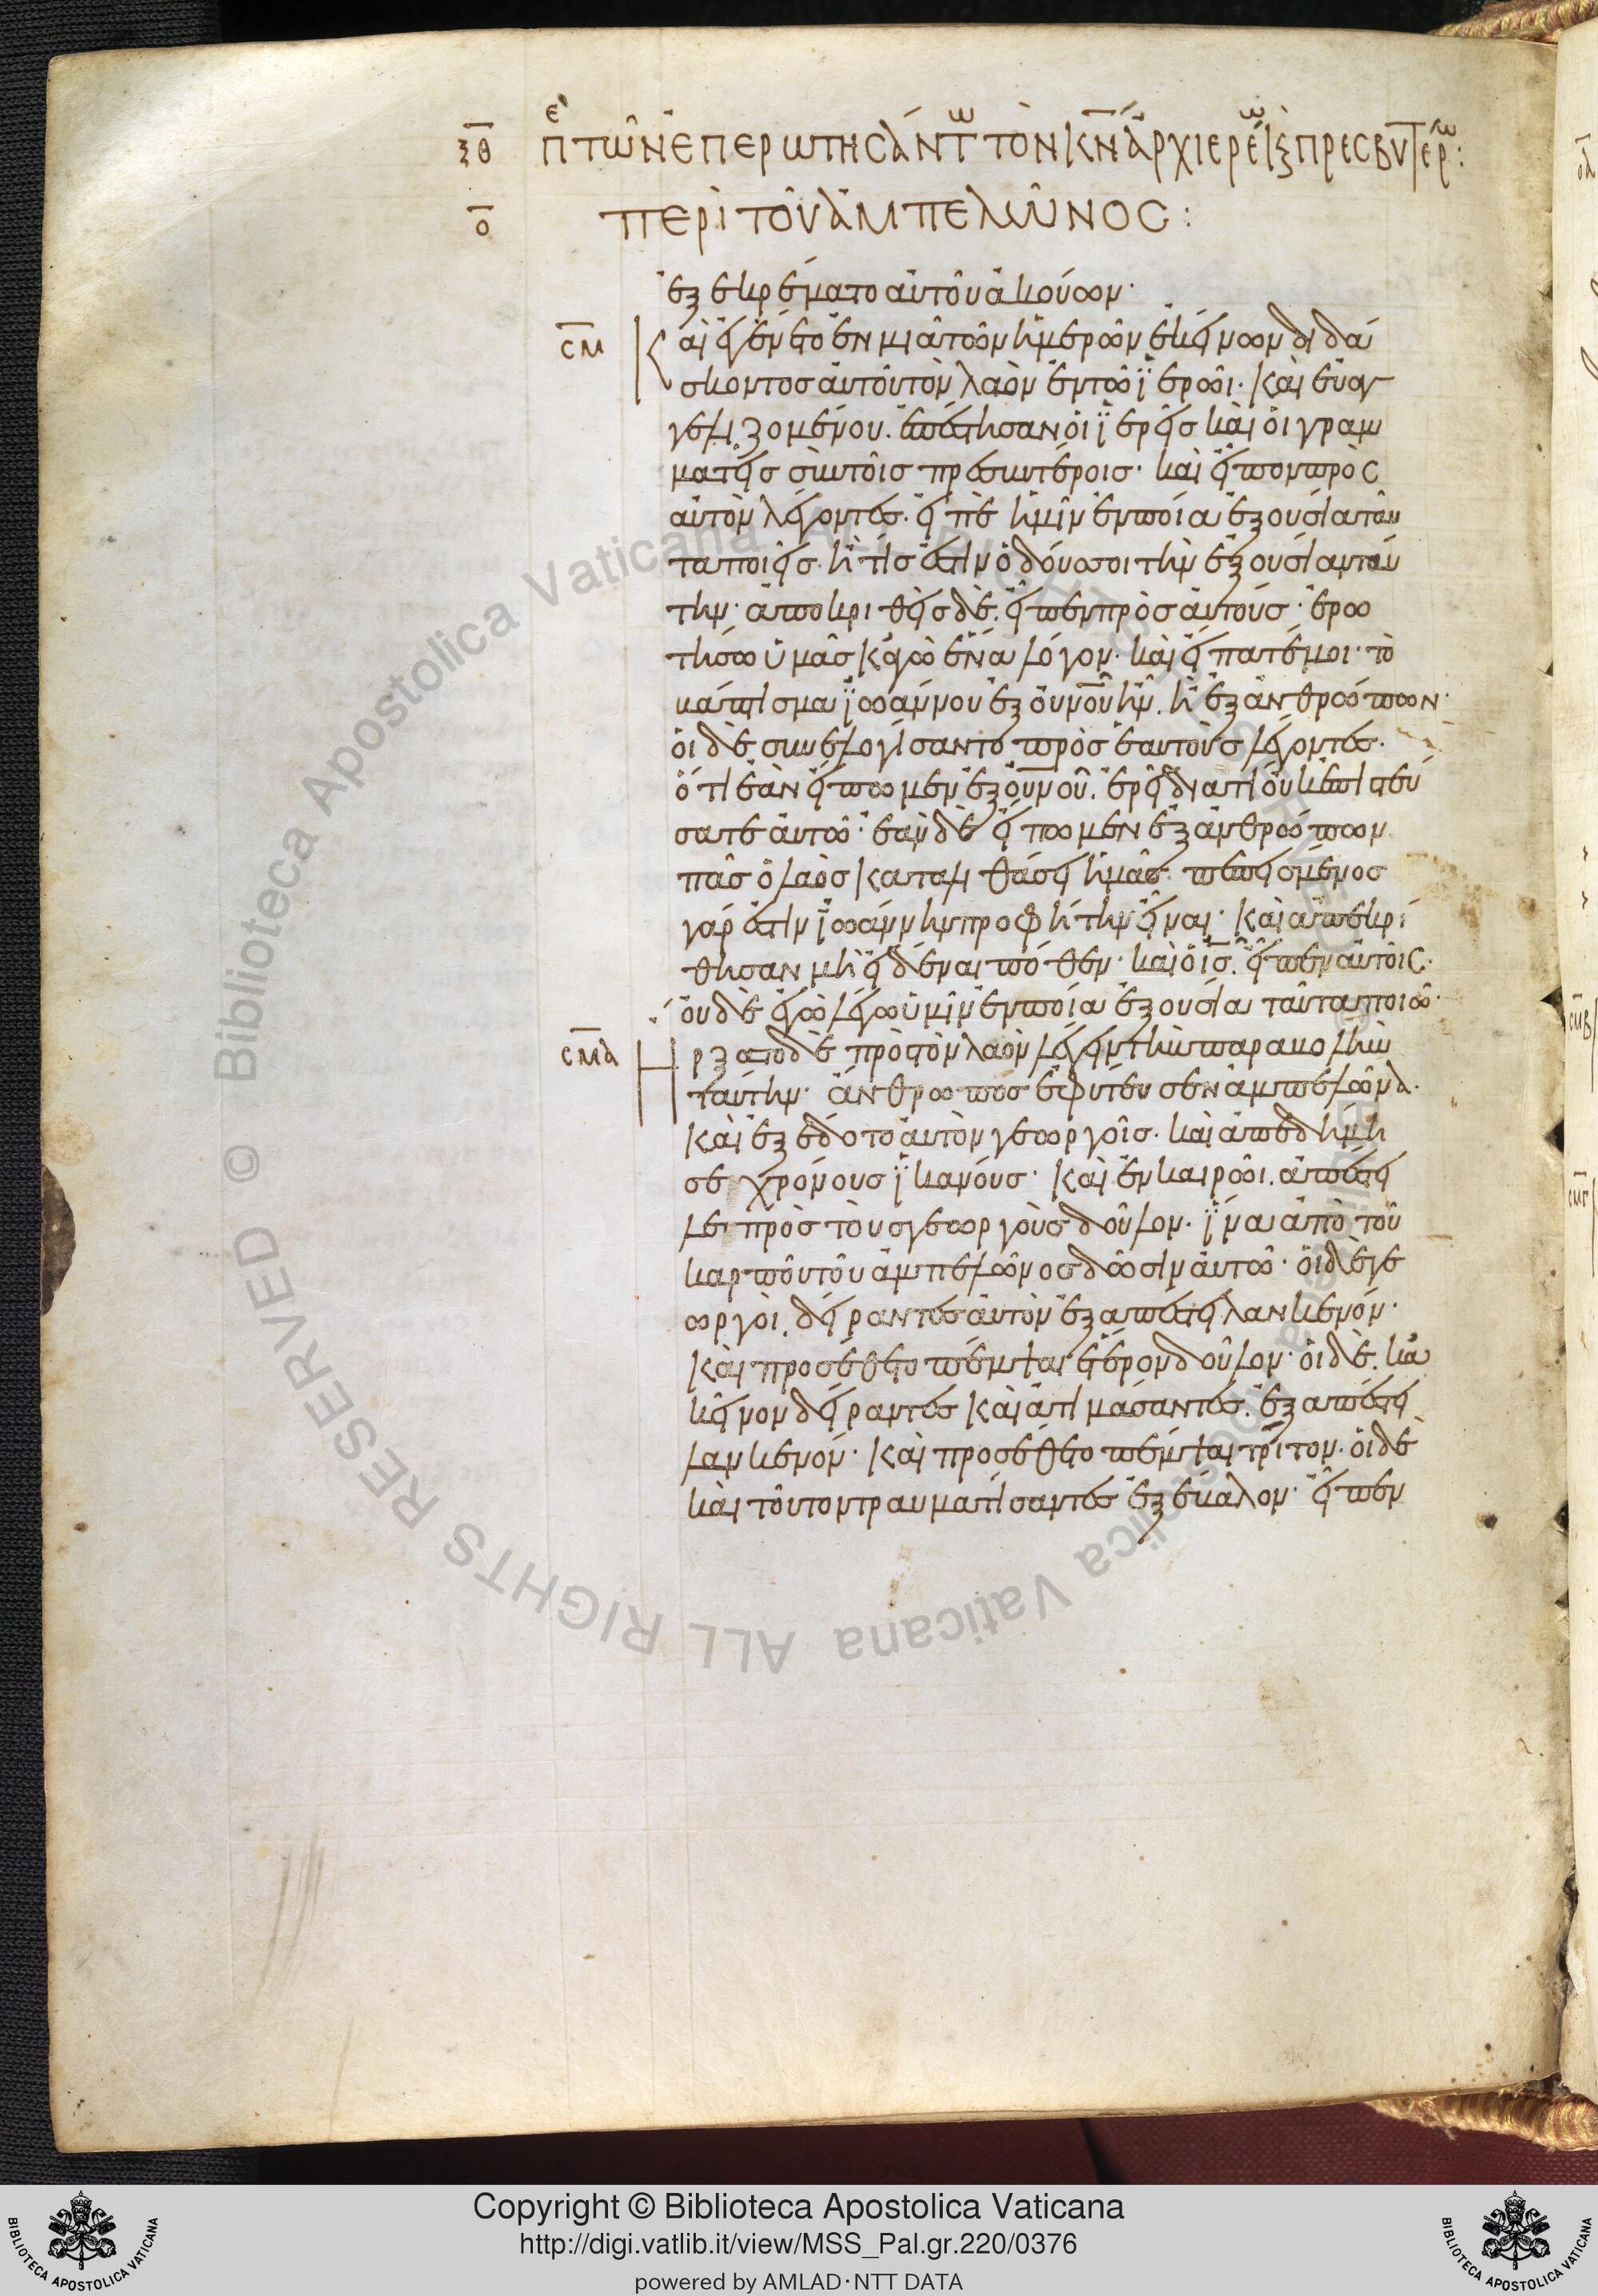 ξθ πε τῶν ἐπερωτησάντων τὸν κν ἀρχιερέων κς πρεσβυτέρων:
ο περὶ τοῦ ἀμπελῶνος:
ἐξεκρέματο αὐτοῦ ἀκούων·
σμ Καὶ ἐγένετο ἐν μιᾷ τῶν ἡμερῶν ἐκείνων διδά
σκοντος αὐτοῦ τὸν λαὸν ἐν τῶ ϊερῶι· καὶ εὐαγ
γελιζομένου. ἐπέστησαν οἱ ϊερεῖς καὶ οἱ γραμ
ματεῖς σὺν τοῖς πρεσβυτέροις· καὶ εἶπον πρὸς
αὐτὸν λέγοντες. εἰπὲ ἡμῖν ἐν ποία ἐξουσία ταῦ
τα ποιεῖς. ἢ τίς ἐστιν ὁ δούς σοι τὴν ἐξουσίαν ταύ
την· ἀποκριθεὶς δὲ. εἶπεν πρὸς αὐτούς· ἐρω
τήσω ὑμᾶς κἀγὼ ἕνα λόγον· καὶ εἴπατέ μοι· τὸ
βάπτισμα ϊωάννου ἐξ οὐνοῦ ἦν. ἢ ἐξ ἀνθρώπων·
οἱ δὲ συνελογίσαντο πρὸς ἑαυτοὺς λέγοντες.
ὅτι ἐὰν εἴπωμεν ἐξ οὐνοῦ. ἐρεῖ διατί οὐκ ἐπιστεύ
σατε αὐτῶ· ἐὰν δὲ εἴπωμεν ἐξ ἀνθρώπων
πᾶς ὁ λαὸς καταλιθάσει ἡμᾶς· πεπεισμένος
γάρ ἐστιν ϊωάννην προφήτην εἶναι· καὶ ἀπεκρί
θησαν μὴ εἰδέναι πόθεν· καὶ ὁ ισ. εἶπεν αὐτοῖς·
οὐδὲ ἐγὼ λέγω ὑμῖν ἐν ποία ἐξουσία ταῦτα ποιῶ·
σμα Ηρξατο δὲ πρὸς τὸν λαὸν λέγειν τὴν παραβολὴν
ταύτην· ἄνθρωπος ἐφύτευσεν ἀμπελῶνα·
καὶ ἐξέδοτο αὐτὸν γεωργοῖς· καὶ ἀπεδήμη
σε χρόνους ϊκανούς· καὶ ἐν καιρῶι. ἀπέστει
λεν πρὸς τοὺς γεωργοὺς δοῦλον· ϊνα ἀπὸ τοῦ
καρποῦ τοῦ ἀμπελῶνος δῶσιν αὐτῶ· οἱ δὲ γε
ωργοὶ. δείραντες αὐτὸν ἐξαπέστειλαν κενόν·
καὶ προσέθετο πέμψαι ἕτερον δοῦλον· οἱ δὲ. κἀ
κεῖνον δείραντες καὶ ἀτιμάσαντες. ἐξαπέστει
λαν κενόν· καὶ προσέθετο πέμψαι τρίτον. οἱ δὲ
καὶ τοῦτον τραυματίσαντες ἐξέβαλον· εἶπεν
Copyright © Biblioteca Apostolica Vaticana
http://digi.vatlib.it/view/MSS_Pal.gr.220/0376
powered by AMLAD·NTT DATA